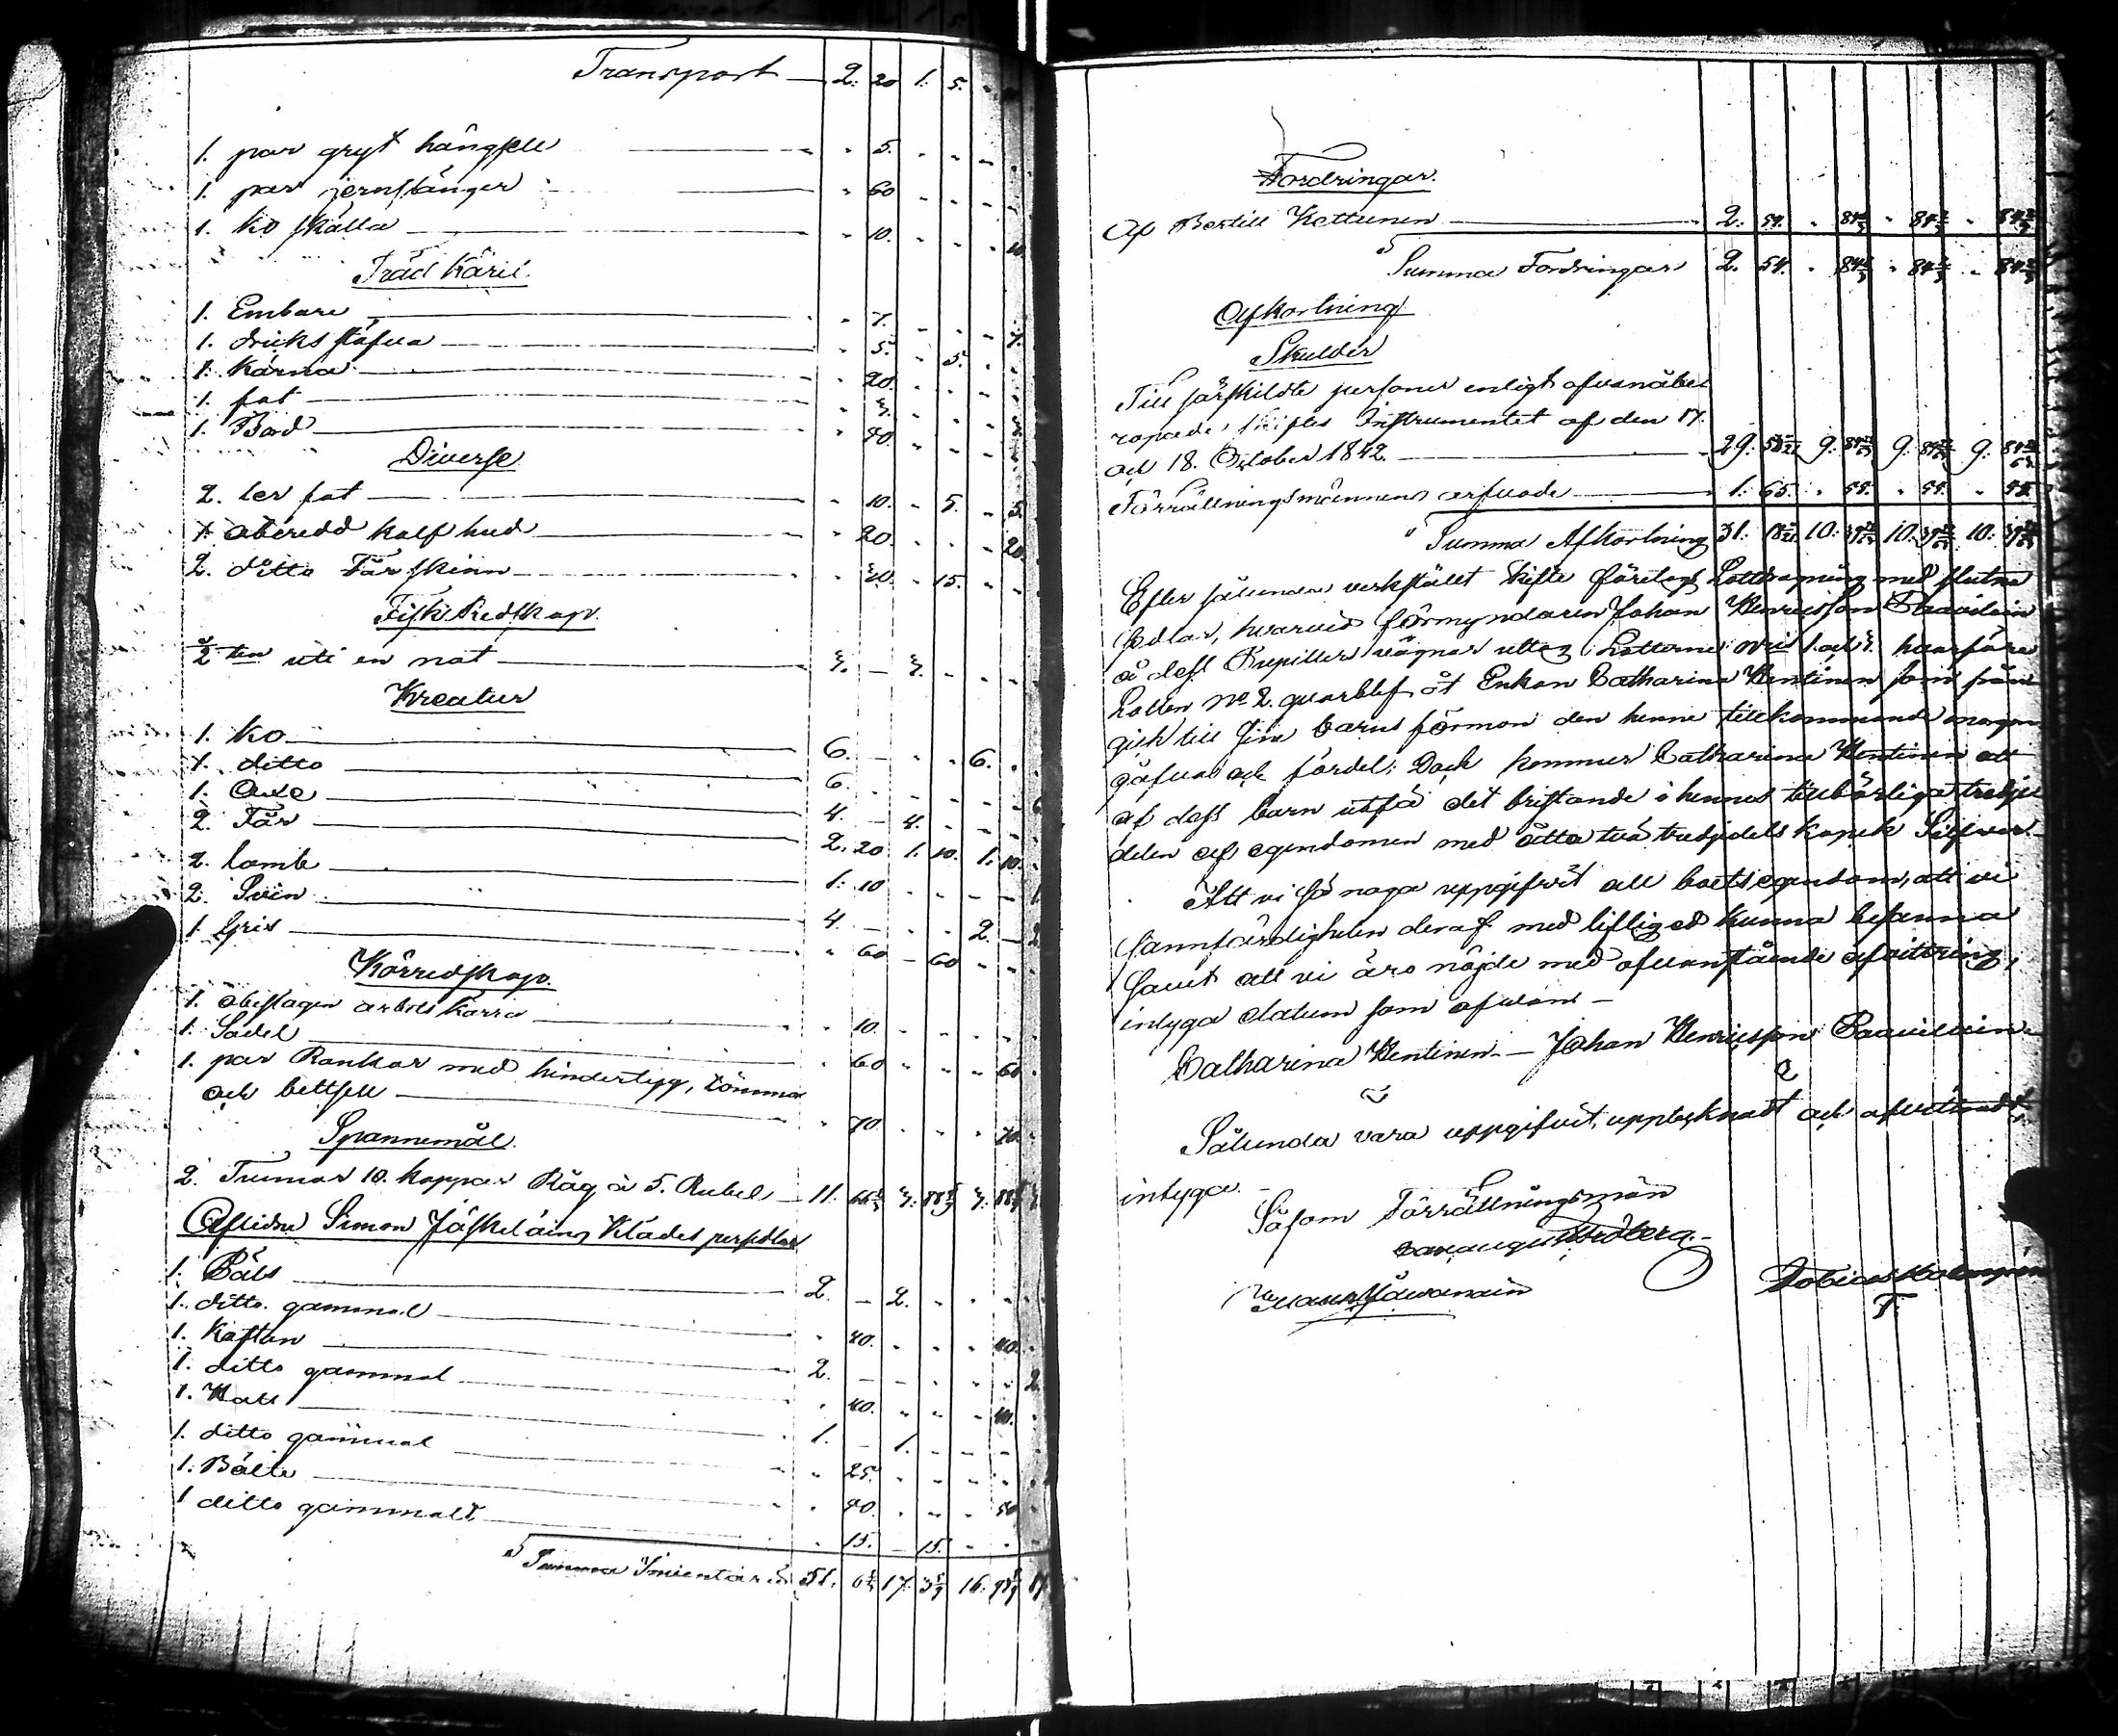 Transport 2. 20 1. 5.
1. par gryt hängsle " 5.
1. par jernstänger " 60
1. ko skälla " 10. 10
Träd Käril
1. Embare " 7. 7.
1. dricks stäfva " 5. 5.
1. Kärna " 20.
1. fat " 3. 3
1. Bord " 40.
Diverse
2. ler fat " 10. 5. 5.
1. oberedd kalf hud " 20. 20
2. ditto Får skinn 15.
Fisk Redskap.
2 ten uti en not 3. 3.
Kreatur
1. Ko 6. 6.
1. ditto 6. 6
1. Oxe 4. 4.
2. Får 2. 20 1. 10. 1. 10.
2. lamb 1. 10 1
2. Svin 4. 2. 2
1. Gris " 60 60
Körredskap.
1. obeslagen arbets kärra " 10.
1. Sadel " 60 60
1. par Rankor med hindertyg, tömmar
och bettsle " 70. 70.
Spannemål.
2. Tunnor 10. kappar Råg à 5. Rubel 11. 66⅔ 3. 88
Aflidne Simon Jäskeläins Klädes persedlar
1. Päls 2. 2.
1. ditto gammal " 40. 40.
1. Kaftan 2. 2
1. ditto gammal " 40. 40.
1. Hatt 1. 1.
1. ditto gammal " 25.
1. Bälte
1 ditto gammalt " 15. 15.
Summa Inventarie 51. 17. 16. 17
Fordringar.
Af Bertill Kettunen 2. 54. " 84⅔ " 84⅔ " 84⅔
Summa Fordringar 2. 54. " 84⅔ " 84⅔ " 84⅔
Afkortning
Skulder
Till särskildte personer enligt ofvanåbe-
ropade skiftes Instrumentet af den 17.
och 18. October 1842. 29. 9. 9. 9.
Förrättningsmännens arfvode 1. 65. " 55. " 55. " 55.
Summa Afkortning 31. 10. 10. 10.
Efter sålunda verkstält skifte företogs Lottdragning med slutne
sedlar, hvarvid förmyndaren Johan Henricsson Paavilain
å dess Pupillers vägnar uttog Lotterne 1. och 3. hvarföre
Lotten No 2. qvarblef åt Enkan Catharina Kentinen som från
gick till sine barns förmon den henne tillkommande morgon
gåfvan och fördel; Dock kommer Catharina Kentinen att
af dess barn utfå det bristande i hennes tillbörliga tredje
delen af egendomen med åtta två tredjedels kopek Silfver.
Att vi så noga uppgifvit all boets egendom, att vi
sannfärdigheten deraf med liflig ed kunna besanna
samt att vi äro nöjde med ofvanstående afvittring,
intyga datum som ofvan
Catharina Kentinen. Johan Henricsson Paavilain
Sålunda vara uppgifvit, upptecknadt och afvittradt,
intyga.
Såsom Förrättningsmän